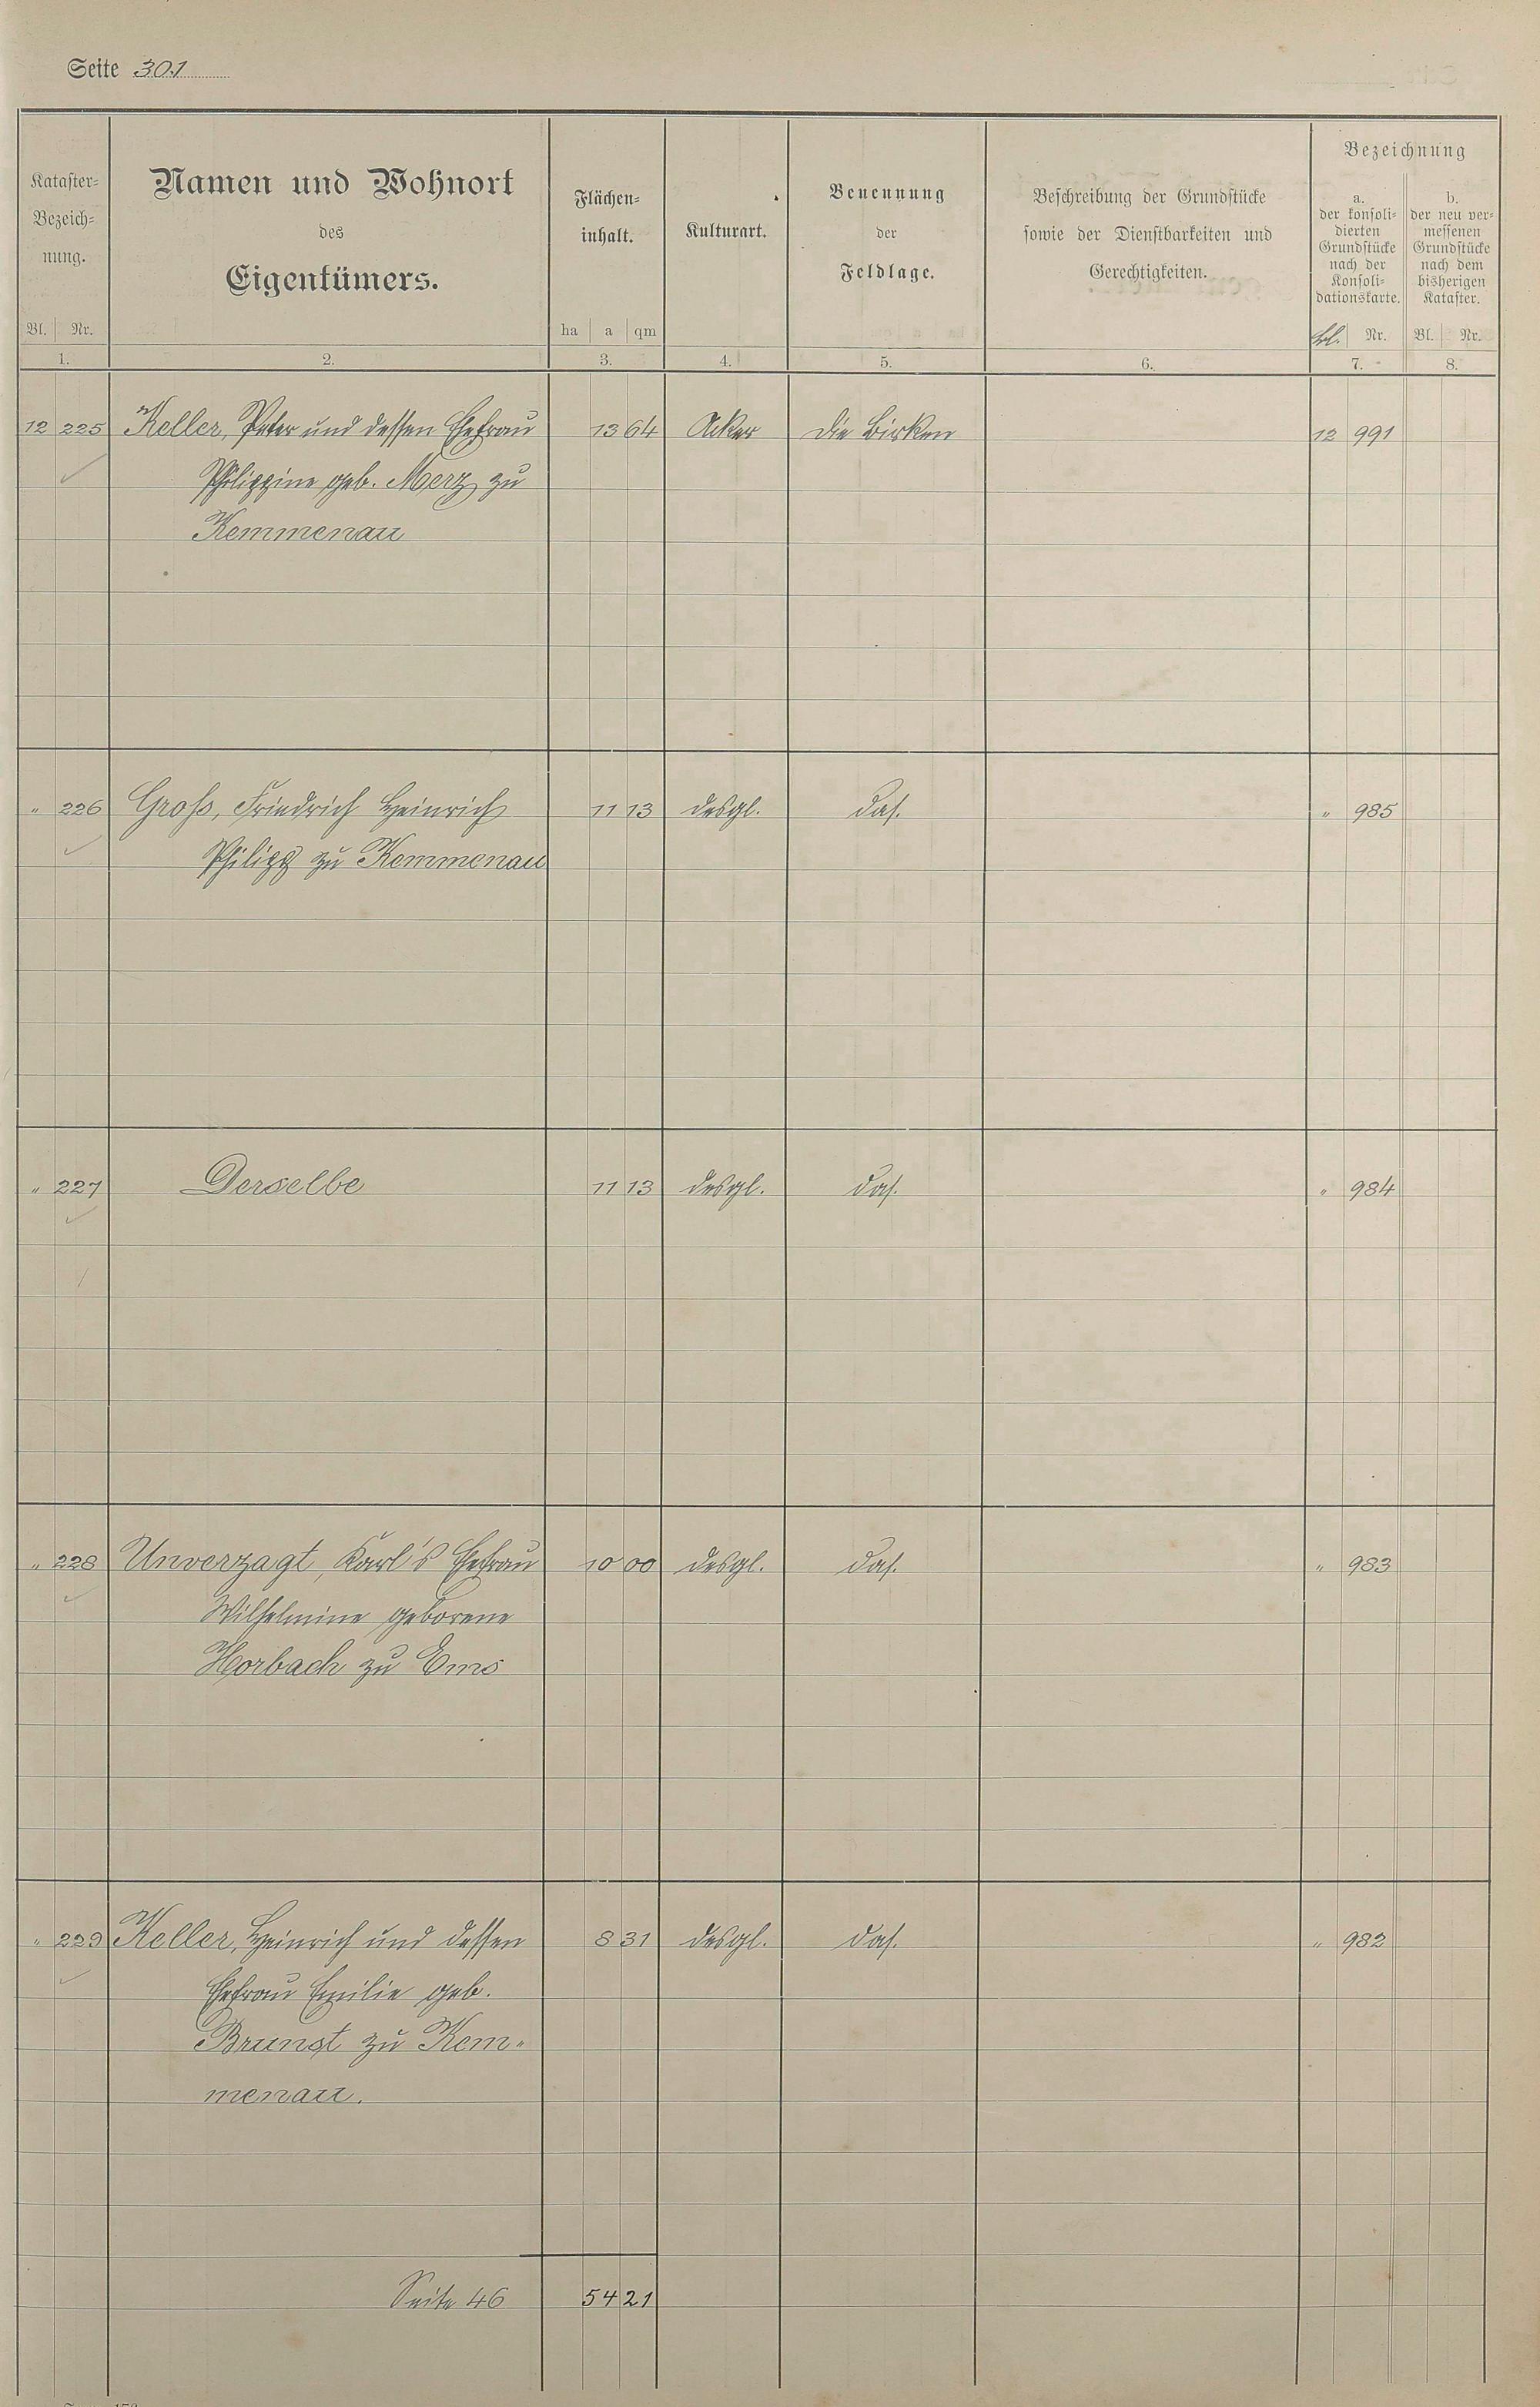 Seite 301
Kataster-
Bezeich-
nung.
Bl. Nr.
1.
Namen und Wohnort
des
Eigentümers.
2.
Flächen-
inhalt.
ha a qm
3.
Kulturart.
4.
Benennung
der
Feldlage.
5.
Beschreibung der Grundstücke
sowie der Dienstbarkeiten und
Gerechtigkeiten.
6.
Bezeichnung
a.
der konsoli-
dierten
Grundstücke
nach der
Konsoli-
dationskarte.
Nr.
7.
b.
der neu ver-
messenen
Grundstücke
nach dem
bisherigen
Kataster.
Bl. Nr.
8.
12 225 Keller, Peter und dessen Ehefrau 13 64 Acker Die Birken 12 991
Philippine geb. Merz zu
Kemmenau
" 226 Groß, Friedrich Heinrich 11 13 desgl. das. " 985
Philipp zu Kemmenau
" 227 Derselbe 11 13 desgl. das. " 984
" 228 Unverzagt, Karl's Ehefrau 10 00 desgl. das. " 983
Wilhelmine geborene
Horbach zu Ems
" 229 Keller, Heinrich und dessen 8 31 desgl. das. " 982
Ehefrau Emilie geb.
Brunst zu Kem-
menau.
Seite 46 54 21